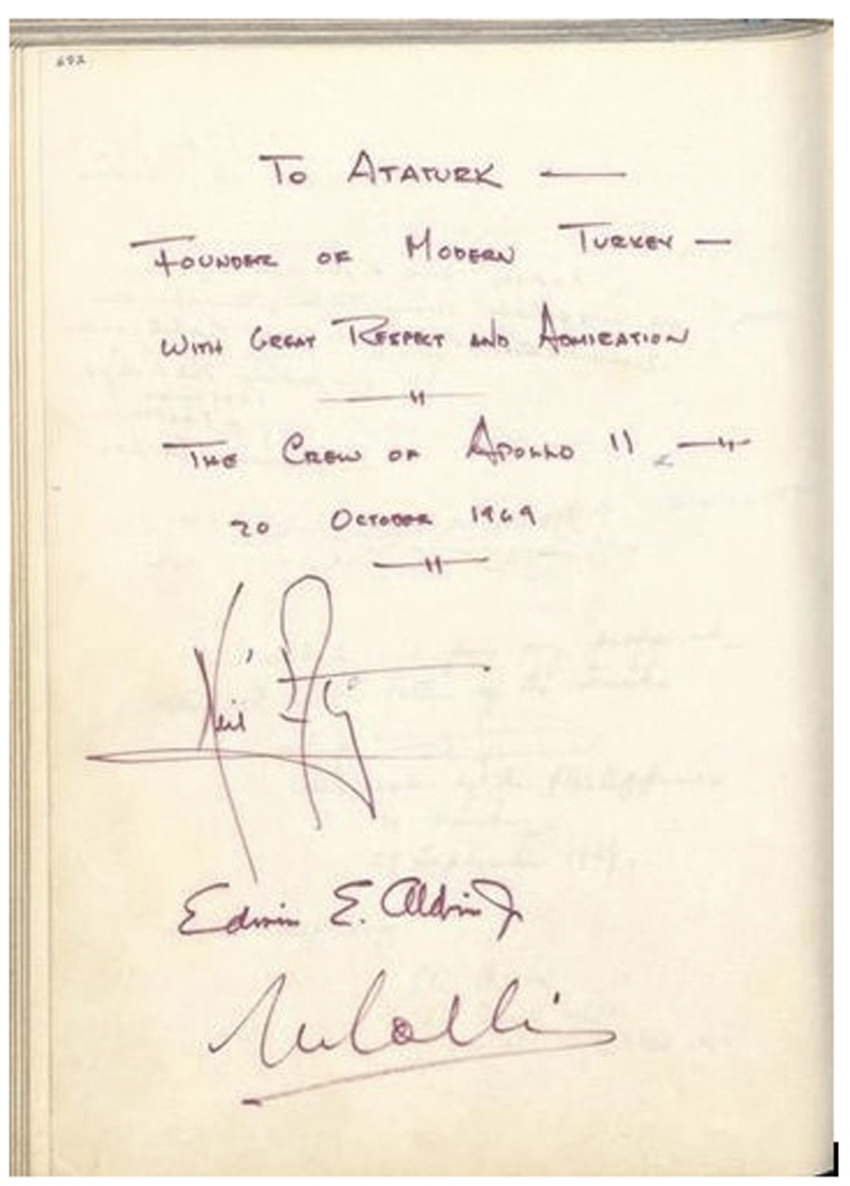 622
To ATATURK —
FOUNDER OF MODERN TURKEY —
WITH GREAT RESPECT AND ADMIRATION
THE CREW OF APOLLO 11
20 OCTOBER 1969
Neil
Edwin E. Aldrin Jr
M Collins